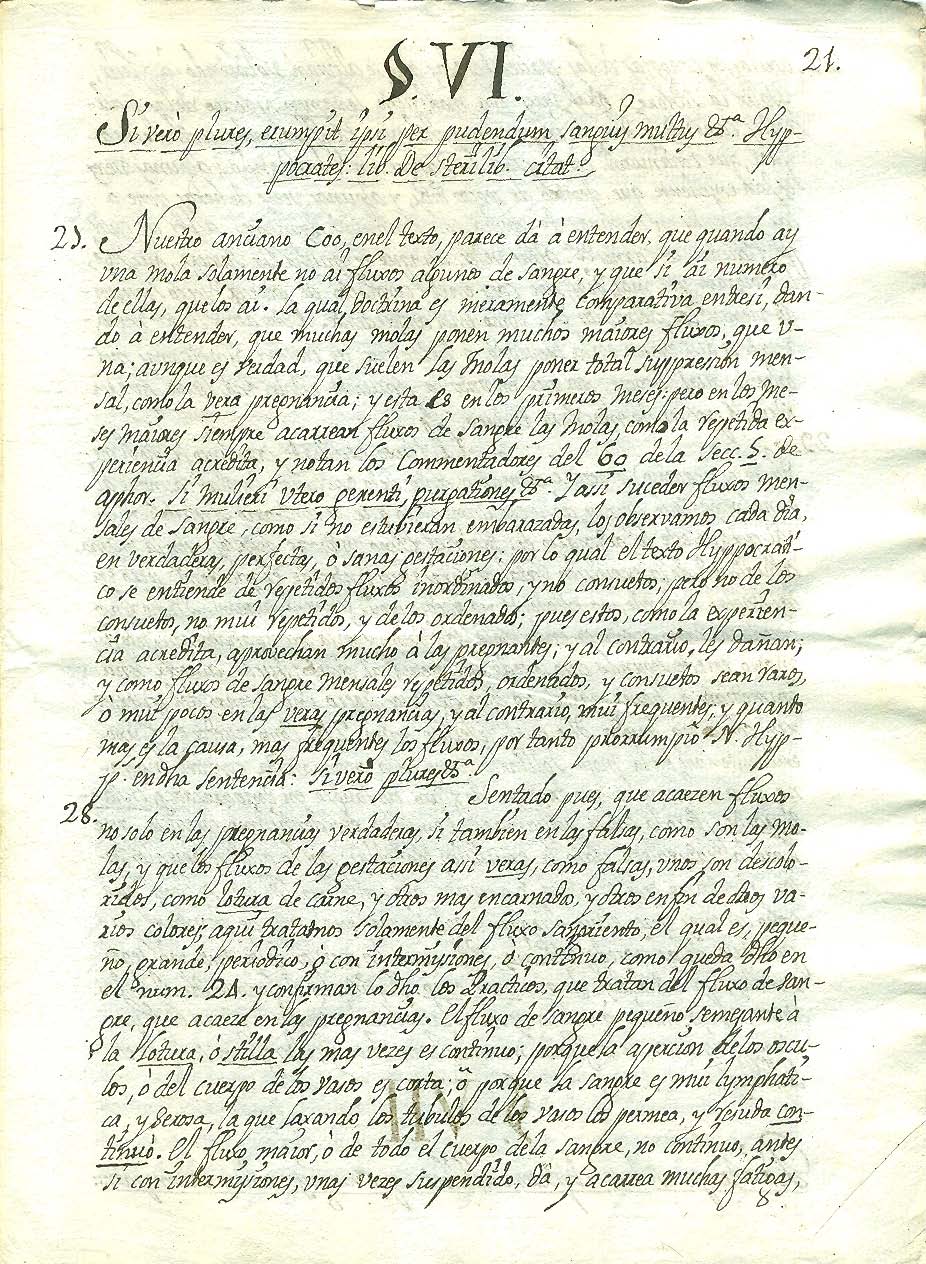 §. VI.
21.
Si verò plures, erumpit ipsi per pudendum sanguis multus &.ª Hyp-
pocrates: lib. De sterilib. citat.
23. Nuestro anciano Coo, en el texto, parece dà à entender, que quando ay
vna mola solamente no ai fluxos algunos de sangre, y que si ai numero
de ellas, que los ai. La qual doctrina es meramente comparativa entresi, dan-
do à entender, que muchas molas ponen muchos maiores fluxos, que v-
na; aunque es verdad, que suelen las Molas poner total suppresion men-
sal, como la vera pregnancia; y esta es en los primeros meses: pero en los me-
ses maiores siempre acarrean fluxos de sangre las Molas, como la repetida ex-
periencia acredita, y notan los Commentadores del 60 de la Secc. 5. de
aphor. Si mulieri vtero gerenti, purgationes &.ª Y assi suceder fluxos men-
sales de sangre, como si no estubieran embarazadas, los observamos cada dia,
en verdaderas, perfectas, ò sanas gestaciones: por lo qual el texto Hyppocrati-
co se entiende de repetidos fluxos inordinados, y no consuetos; pero no de los
consuetos, no mui repetidos, y de los ordenados; pues estos, como la experien-
cia acredita, aprovechan mucho à las pregnantes; y al contrario, les dañan;
y como fluxos de sangre mensales repetidos, ordenados, y consuetos sean raros,
ò mui pocos en las veras pregnancias, y al contrario, mui frequentes, y quanto
mas es la causa, mas frequentes los fluxos, por tanto prorrumpió N. Hyp-
p. en dha sentencia: si verò plures &.ª
28. Sentado pues, que acaezen fluxos
no solo en las pregnancias verdaderas, si tambien en las falsas, como son las Mo-
las, y que los fluxos de las gestaciones assi veras, como falsas, vnos son descolo-
ridos, como lotura de carne, y otros mas encarnados, y otros en fin de otros va-
rios colores; aqui tratamos solamente del fluxo sangriento, el qual es, peque-
ño, grande, periodico, ò con intermisiones, ò continuo, como queda dho en
el num. 24. y confirman lo dho los Practicos, que tratan del fluxo de san-
gre, que acaeze en las pregnancias. El fluxo de sangre pequeño semejante à
la lotura, ò stilla las mas vezes es continuo; porque la apercion de los oscu-
los, ò del cuerpo de los vasos es corta; ò porque la sangre es mui lymphati-
ca, y serosa, la que laxando los tubulos de los vasos los permea, y resuda con-
tinuò. El fluxo maior, ò de todo el cuerpo de la sangre, no continuo, antes
si con intermisiones, vnas vezes suspendido, dà, y acarrea muchas fatigas,